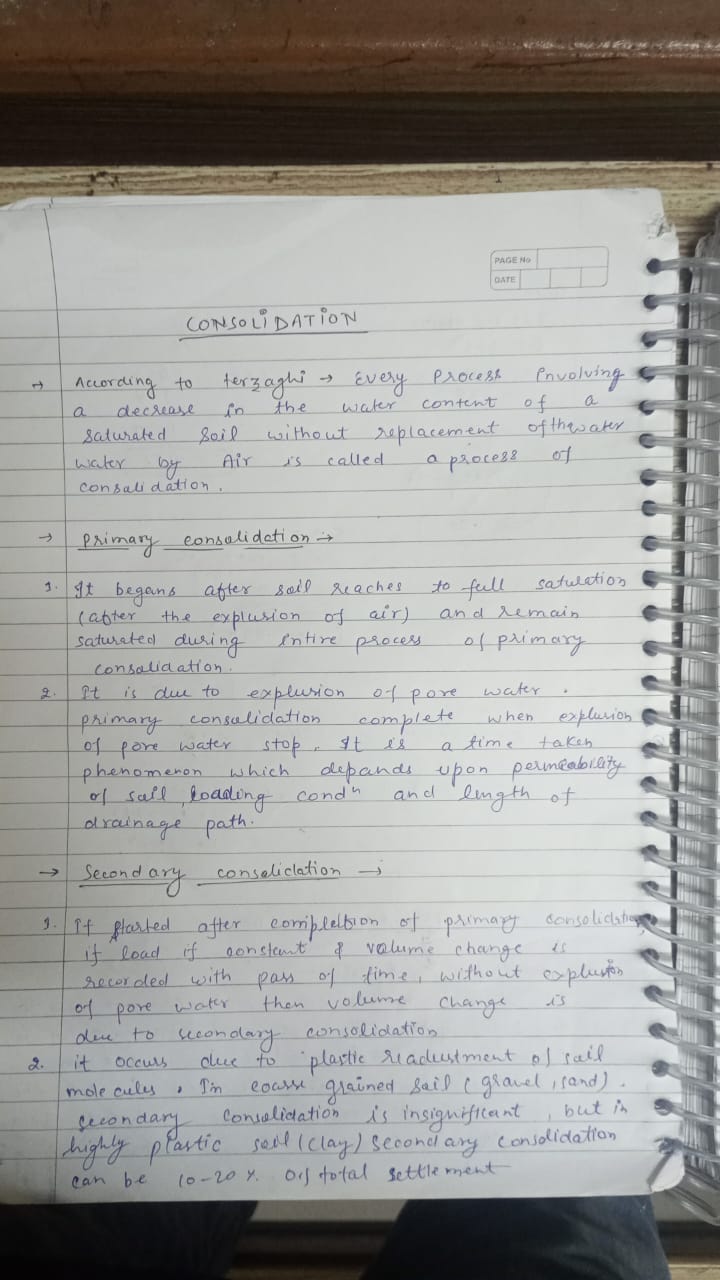 PAGE No
DATE
CONSOLIDATION
→ According to terzaghi → Every Process Envolving
a decrease in the water content of a
saturated soil without replacement of the water
water by Air is called a process of
consalidation.
→ Primary consolidation →
1. It begans after soil reaches to full saturation
(after the explusion of air) and remain
saturated during entire process of primary
consalidation.
2. It is due to explusion of pore water.
primary consalidation complete when explusion
of pore water stop. It is a time taken
phenomenon which depands upon permeability
of sail, loading condn and length of
drainage path.
→ Secondary consolidation →
1. It started after complettion of primary consolidation
if load if constant & volume change is
recorded with pass of time, without explusion
of pore water then volume change is
due to secondary consolidation
2. it occurs due to plastic readustment of sail
molecules. In coarse grained sail (gravel, sand).
secondary consolidation is insignificant, but in
highly plastic sail (clay) secondary consolidation
can be 10-20 % of total settlement